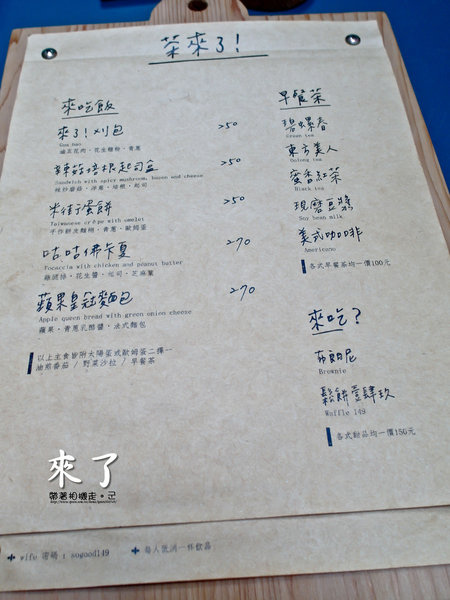 茶來了!
來吃飯
來了!刈包 250
Gua bao
滷五花肉、花生糖粉、青蔥
辣菇培根起司盒 250
Sandwich with spicy mushroom, bacon and cheese
辣炒蘑菇、洋蔥、培根、起司
米街蛋餅 250
Taiwanese crêpe with omelet
手作餅皮麵糊、青蔥、歐姆蛋
咕咕佛卡夏 270
Focaccia with chicken and peanut butter
雞腿排、花生醬、起司、芝麻葉
蘋果皇冠麵包 270
Apple queen bread with green onion cheese
蘋果、青蔥乳酪醬、法式麵包
以上主食皆附太陽蛋或歐姆蛋二擇一
油煎番茄 / 野菜沙拉 / 早餐茶
早餐茶
碧螺春
Green tea
東方美人
Oolong tea
蜜香紅茶
Black tea
現磨豆漿
Soy bean milk
美式咖啡
Americano
各式早餐茶均一價100元
來吃?
布朗尼
Brownie
鬆餅壹肆玖
Waffle 149
各式甜品均一價150元
來了
帶著相機走。记
wifo 密碼 : sogood149
每人低消一杯飲品